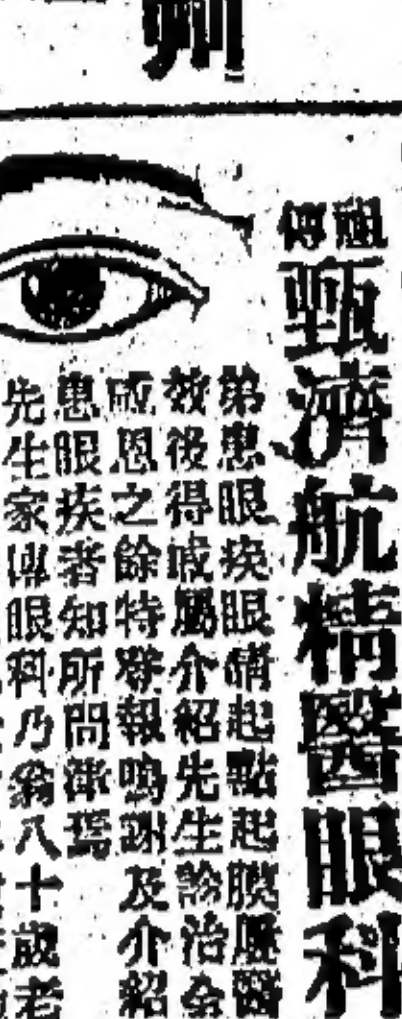 祖傳
甄濟航精醫眼科
弟患眼疾眼睛起點起膜歷醫
敎後得戚屬介紹先生診治全
感恩之餘特登報鳴謝及介紹
患眼疾者知所問津焉
先生家傳眼科乃翁八十歲老